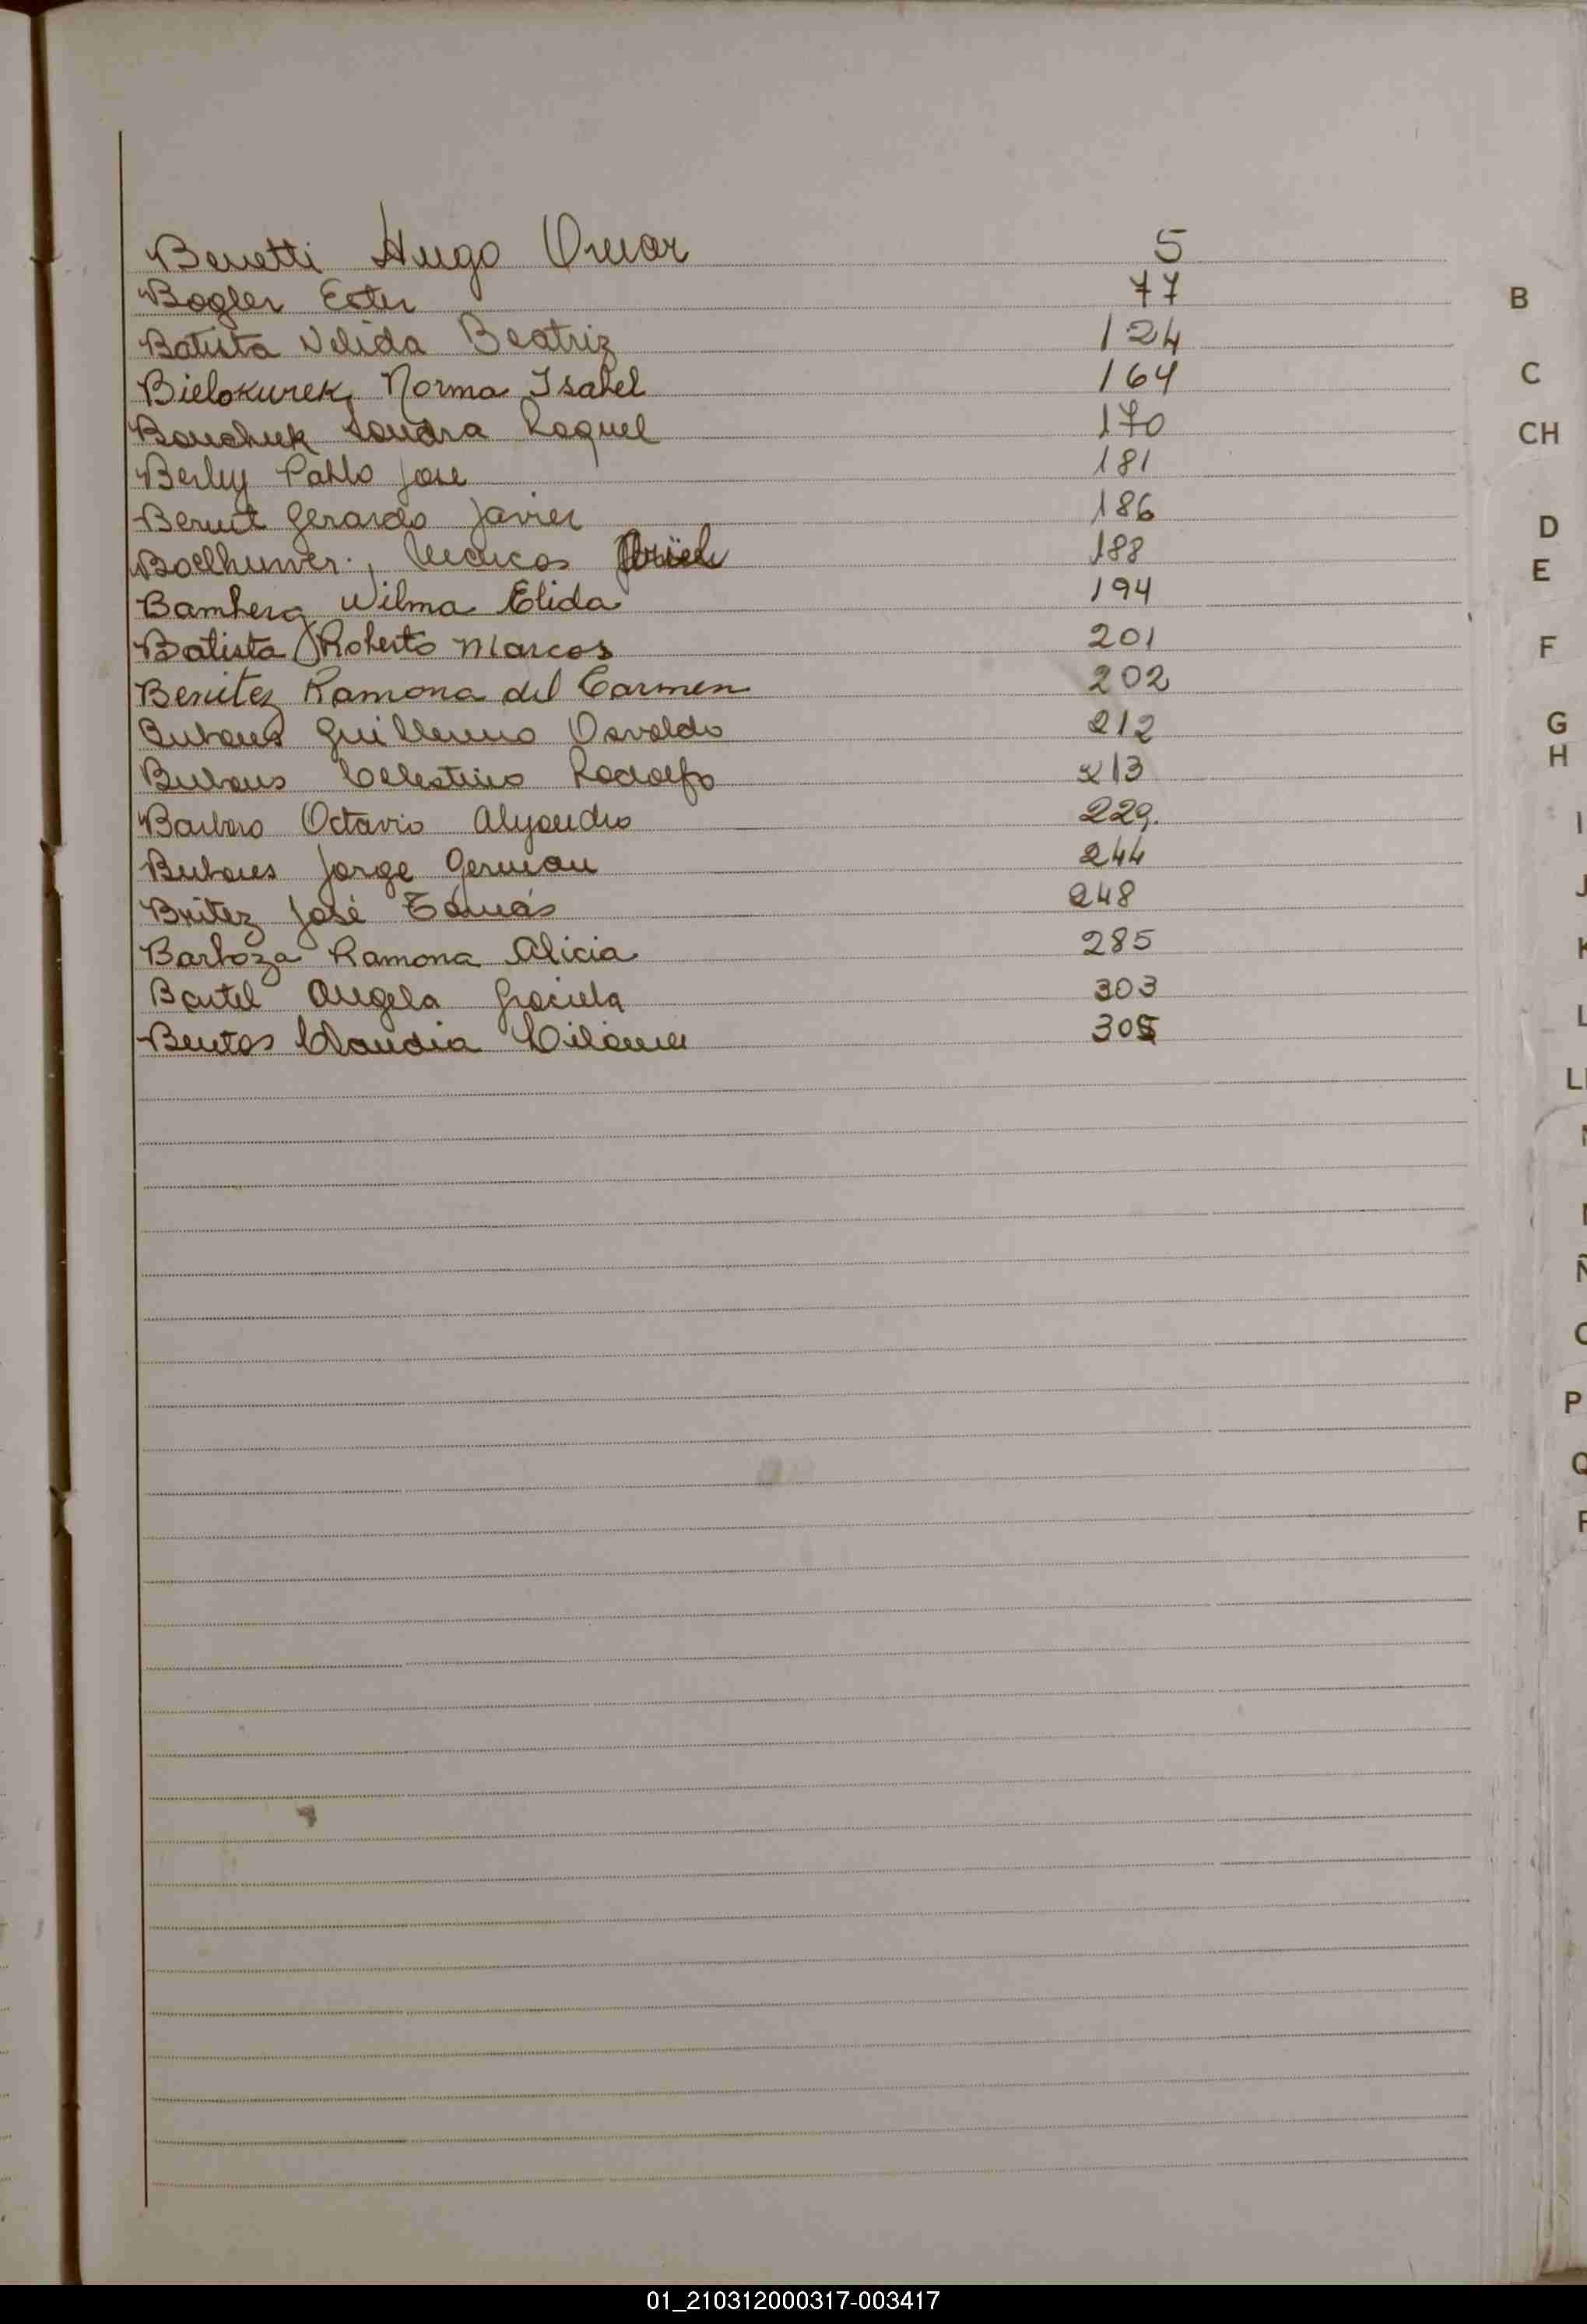 Benetti Hugo Omar 5
Bogler Ester 77
Batista Nelida Beatriz 124
Bielokurek, Norma Isabel 164
Bonchuk Sandra Raquel 170
Berley Pablo Jose 181
Gerardo Javier 186
Marcos Ariel 188
Bamberg Wilma Elida 194
Batista Roberto Marcos 201
Benitez Ramona del Carmen 202
Guillermo Osvaldo 212
Celestino Rodolfo 213
Barbaro Octavio Alejandro 229.
Jorge German 244
Britez José Tomás 248
Barboza Ramona Alicia 285
Bartel Angela Graciela 303
Bentos Claudia Liliana 305
B
C
CH
D
E
F
G
H
I
J
K
L
P
Q
01_210312000317-003417